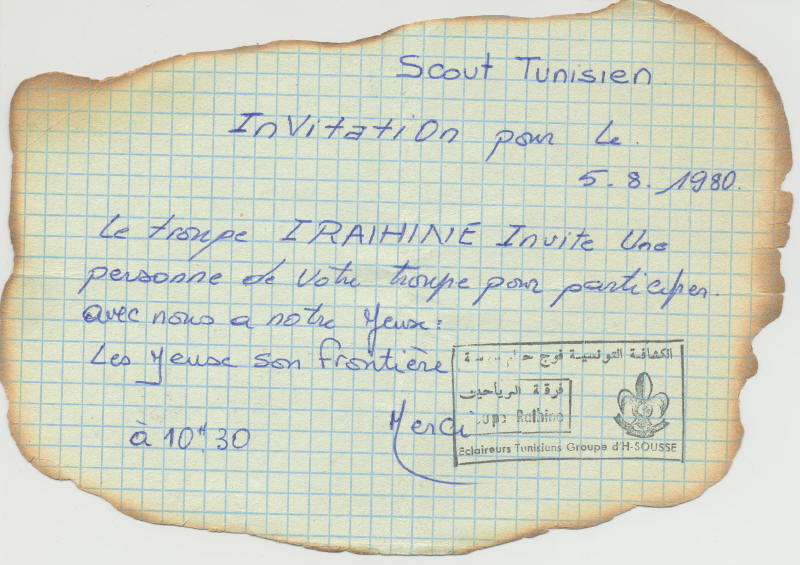 Scout Tunisien
InVitatiOn pour Le.
5.8.1980.
Le troupe IRAIHINE Invite Une
personne de Votre troupe pour participer.
avec nous a notre Yeux:
Les Yeux son frontière
الكشافة التونسية فوج حمام سوسة
فرقة الرياحين
Raihine
Eclaireurs Tunisiens Groupe d'H-SOUSSE
à 10H.30
Merci